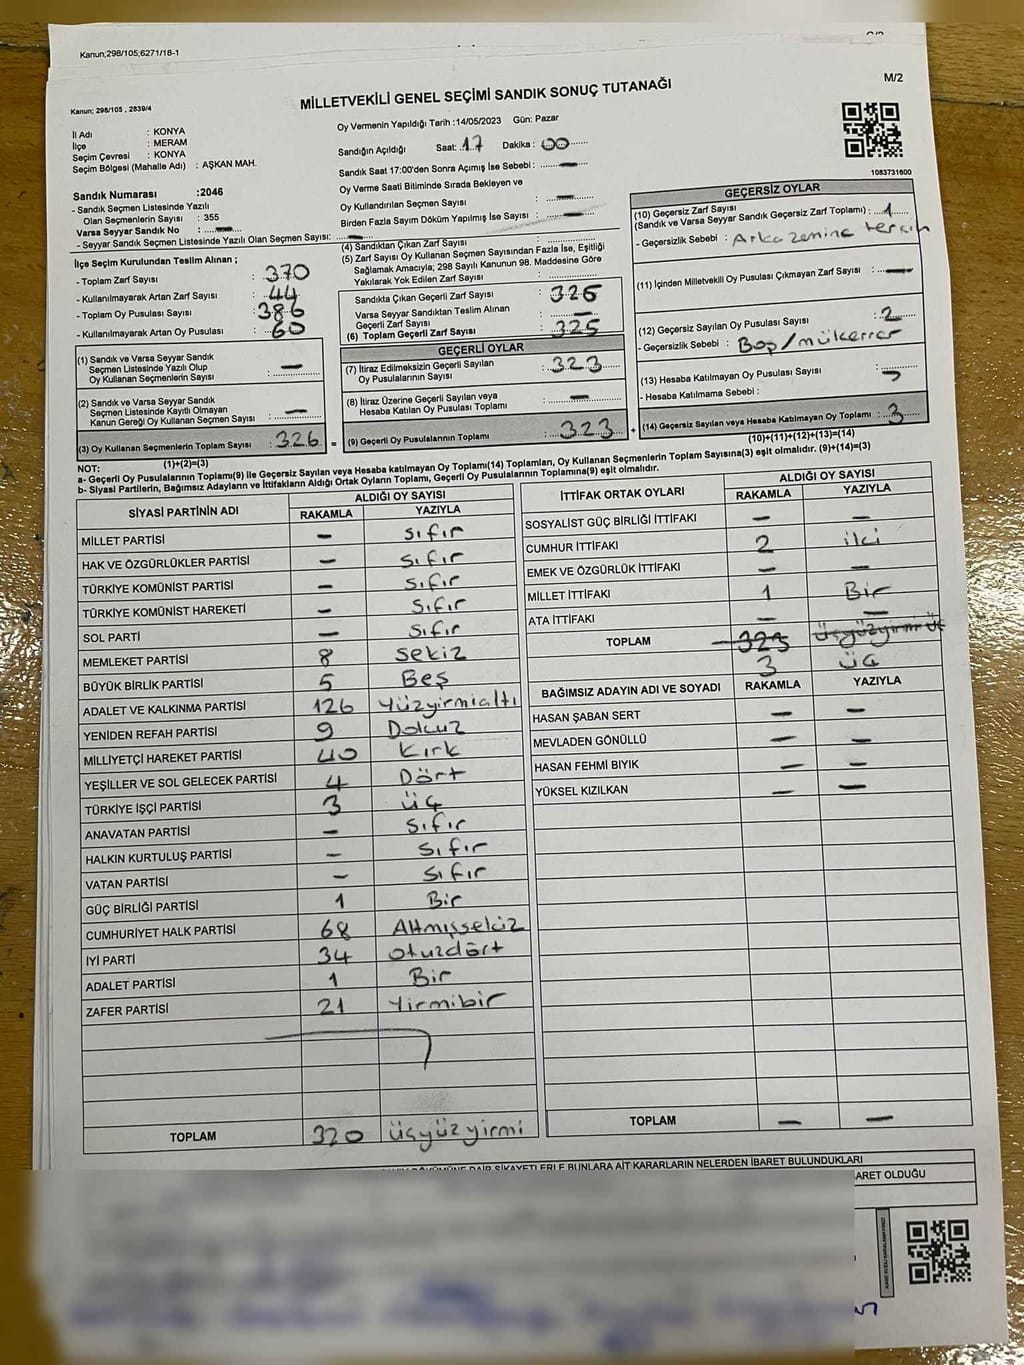 Kanun;298/105;6271/18-1
Kanun; 298/105 , 2839/4
M/2
MİLLETVEKİLİ GENEL SEÇİMİ SANDIK SONUÇ TUTANAĞI
İl Adı : KONYA
İlçe : MERAM
Seçim Çevresi : KONYA
Seçim Bölgesi (Mahalle Adı) : AŞKAN MAH.
Oy Vermenin Yapıldığı Tarih :14/05/2023 Gün: Pazar
Sandığın Açıldığı Saat: 17 Dakika: 00
Sandık Saat 17:00'den Sonra Açımış İse Sebebi : —
Oy Verme Saati Bitiminde Sırada Bekleyen ve
Oy Kullandırılan Seçmen Sayısı : —
Birden Fazla Sayım Döküm Yapılmış İse Sayısı : —
1083731600
Sandık Numarası :2046
- Sandık Seçmen Listesinde Yazılı
Olan Seçmenlerin Sayısı : 355
Varsa Seyyar Sandık No : —
- Seyyar Sandık Seçmen Listesinde Yazılı Olan Seçmen Sayısı: —
İlçe Seçim Kurulundan Teslim Alınan ;
- Toplam Zarf Sayısı : 370
- Kullanılmayarak Artan Zarf Sayısı : 44
- Toplam Oy Pusulası Sayısı : 386
- Kullanılmayarak Artan Oy Pusulası : 60
(1) Sandık ve Varsa Seyyar Sandık
Seçmen Listesinde Yazılı Olup
Oy Kullanan Seçmenlerin Sayısı : —
(2) Sandık ve Varsa Seyyar Sandık
Seçmen Listesinde Kayıtlı Olmayan
Kanun Gereği Oy Kullanan Seçmen Sayısı : —
(3) Oy Kullanan Seçmenlerin Toplam Sayısı : 326
(1)+(2)=(3)
(4) Sandıktan Çıkan Zarf Sayısı :
(5) Zarf Sayısı Oy Kullanan Seçmen Sayısından Fazla İse, Eşitliği
Sağlamak Amacıyla; 298 Sayılı Kanunun 98. Maddesine Göre
Yakılarak Yok Edilen Zarf Sayısı :
Sandıkta Çıkan Geçerli Zarf Sayısı : 325
Varsa Seyyar Sandıktan Teslim Alınan
Geçerli Zarf Sayısı : —
(6) Toplam Geçerli Zarf Sayısı : 325
GEÇERLİ OYLAR
(7) İtiraz Edilmeksizin Geçerli Sayılan
Oy Pusulalarının Sayısı : 323
(8) İtiraz Üzerine Geçerli Sayılan veya
Hesaba Katılan Oy Pusulası Toplamı : —
= (9) Geçerli Oy Pusulalarının Toplamı : 323 +
GEÇERSİZ OYLAR
(10) Geçersiz Zarf Sayısı
(Sandık ve Varsa Seyyar Sandık Geçersiz Zarf Toplamı) : 1
- Geçersizlik Sebebi : Arka zemine tercih
(11) İçinden Milletvekili Oy Pusulası Çıkmayan Zarf Sayısı : —
(12) Geçersiz Sayılan Oy Pusulası Sayısı : 2
- Geçersizlik Sebebi : Boş/mükerrer
(13) Hesaba Katılmayan Oy Pusulası Sayısı :
- Hesaba Katılmama Sebebi :
(14) Geçersiz Sayılan veya Hesaba Katılmayan Oy Toplamı : 3
(10)+(11)+(12)+(13)=(14)
NOT:
a- Geçerli Oy Pusulalarının Toplamı(9) ile Geçersiz Sayılan veya Hesaba katılmayan Oy Toplamı(14) Toplamları, Oy Kullanan Seçmenlerin Toplam Sayısına(3) eşit olmalıdır. (9)+(14)=(3)
b- Siyasi Partilerin, Bağımsız Adayların ve İttifakların Aldığı Ortak Oyların Toplamı, Geçerli Oy Pusulalarının Toplamına(9) eşit olmalıdır.
SİYASİ PARTİNİN ADI ALDIĞI OY SAYISI
RAKAMLA YAZIYLA
MİLLET PARTİSİ — Sıfır
HAK VE ÖZGÜRLÜKLER PARTİSİ — Sıfır
TÜRKİYE KOMÜNİST PARTİSİ — Sıfır
TÜRKİYE KOMÜNİST HAREKETİ — Sıfır
SOL PARTİ — Sıfır
MEMLEKET PARTİSİ 8 Sekiz
BÜYÜK BİRLİK PARTİSİ 5 Beş
ADALET VE KALKINMA PARTİSİ 126 Yüzyirmialtı
YENİDEN REFAH PARTİSİ 9 Dokuz
MİLLİYETÇİ HAREKET PARTİSİ 40 Kırk
YEŞİLLER VE SOL GELECEK PARTİSİ 4 Dört
TÜRKİYE İŞÇİ PARTİSİ 3 Üç
ANAVATAN PARTİSİ — Sıfır
HALKIN KURTULUŞ PARTİSİ — Sıfır
VATAN PARTİSİ — Sıfır
GÜÇ BİRLİĞİ PARTİSİ 1 Bir
CUMHURİYET HALK PARTİSİ 68 Altmışsekiz
İYİ PARTİ 34 Otuzdört
ADALET PARTİSİ 1 Bir
ZAFER PARTİSİ 21 Yirmibir
TOPLAM 320 Üçyüzyirmi
İTTİFAK ORTAK OYLARI ALDIĞI OY SAYISI
RAKAMLA YAZIYLA
SOSYALİST GÜÇ BİRLİĞİ İTTİFAKI — —
CUMHUR İTTİFAKI 2 iki
EMEK VE ÖZGÜRLÜK İTTİFAKI — —
MİLLET İTTİFAKI 1 Bir
ATA İTTİFAKI — —
TOPLAM 323 Üçyüzyirmi üç
3 Üç
BAĞIMSIZ ADAYIN ADI VE SOYADI RAKAMLA YAZIYLA
HASAN ŞABAN SERT — —
MEVLADEN GÖNÜLLÜ — —
HASAN FEHMİ BIYIK — —
YÜKSEL KIZILKAN — —
TOPLAM — —
DÖKÜMÜNE DAİR ŞİKAYETLERLE BUNLARA AİT KARARLARIN NELERDEN İBARET BULUNDUKLARI
ARET OLDUĞU